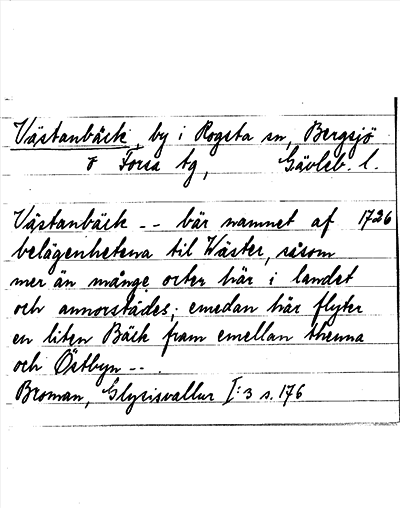 Västanbäck, by i Rogsta sn, Bergsjö
o Forsa tg, Gävleb. l.
Västanbäck -- bär namnet af 1726
belägenhetena til Wäster, såsom
mer än månge orter här i landet
och annorstädes; emedan här flyter
en liten Bäck fram emellan thenna
och Östbyn --.
Broman, Glysisvallur I:3 s. 176